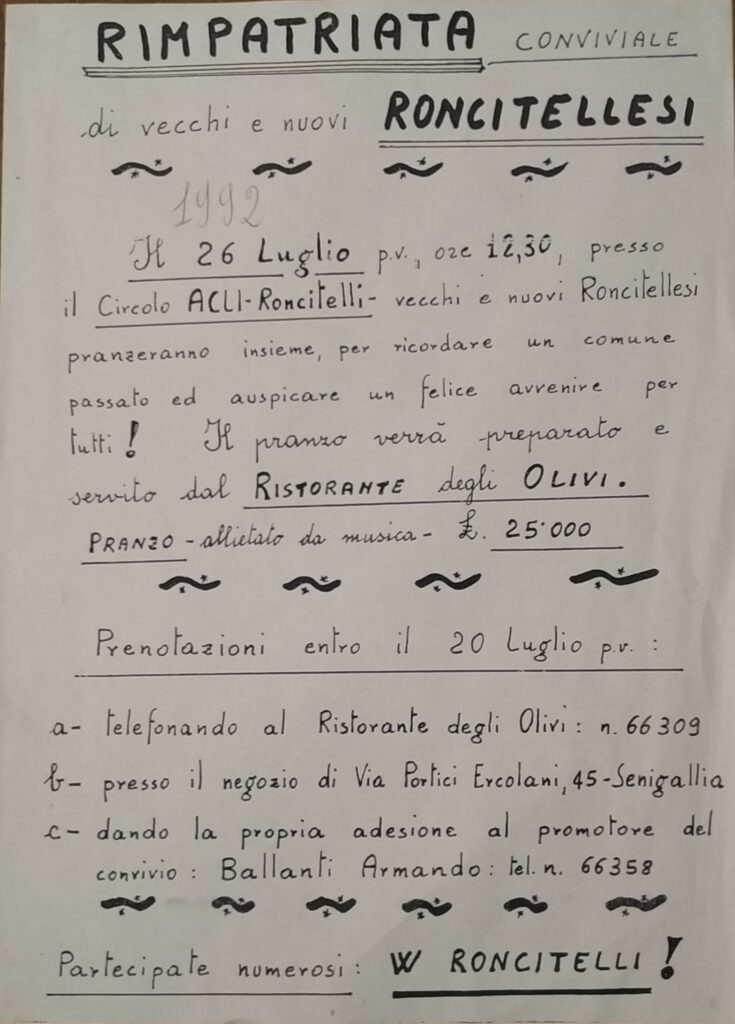 RIMPATRIATA CONVIVIALE
di vecchi e nuovi RONCITELLESI
1992
Il 26 Luglio p.v., ore 12,30, presso
il Circolo ACLI-Roncitelli- vecchi e nuovi Roncitellesi
pranzeranno insieme, per ricordare un comune
passato ed auspicare un felice avvenire per
tutti! Il pranzo verrà preparato e
servito dal RISTORANTE degli OLIVI.
PRANZO - allietato da musica - £. 25.000
Prenotazioni entro il 20 Luglio p.v. :
a- telefonando al Ristorante degli Olivi: n. 66309
b- presso il negozio di Via Portici Ercolani, 45-Senigallia
c- dando la propria adesione al promotore del
convivio : Ballanti Armando: tel. n. 66358
Partecipate numerosi : W RONCITELLI!